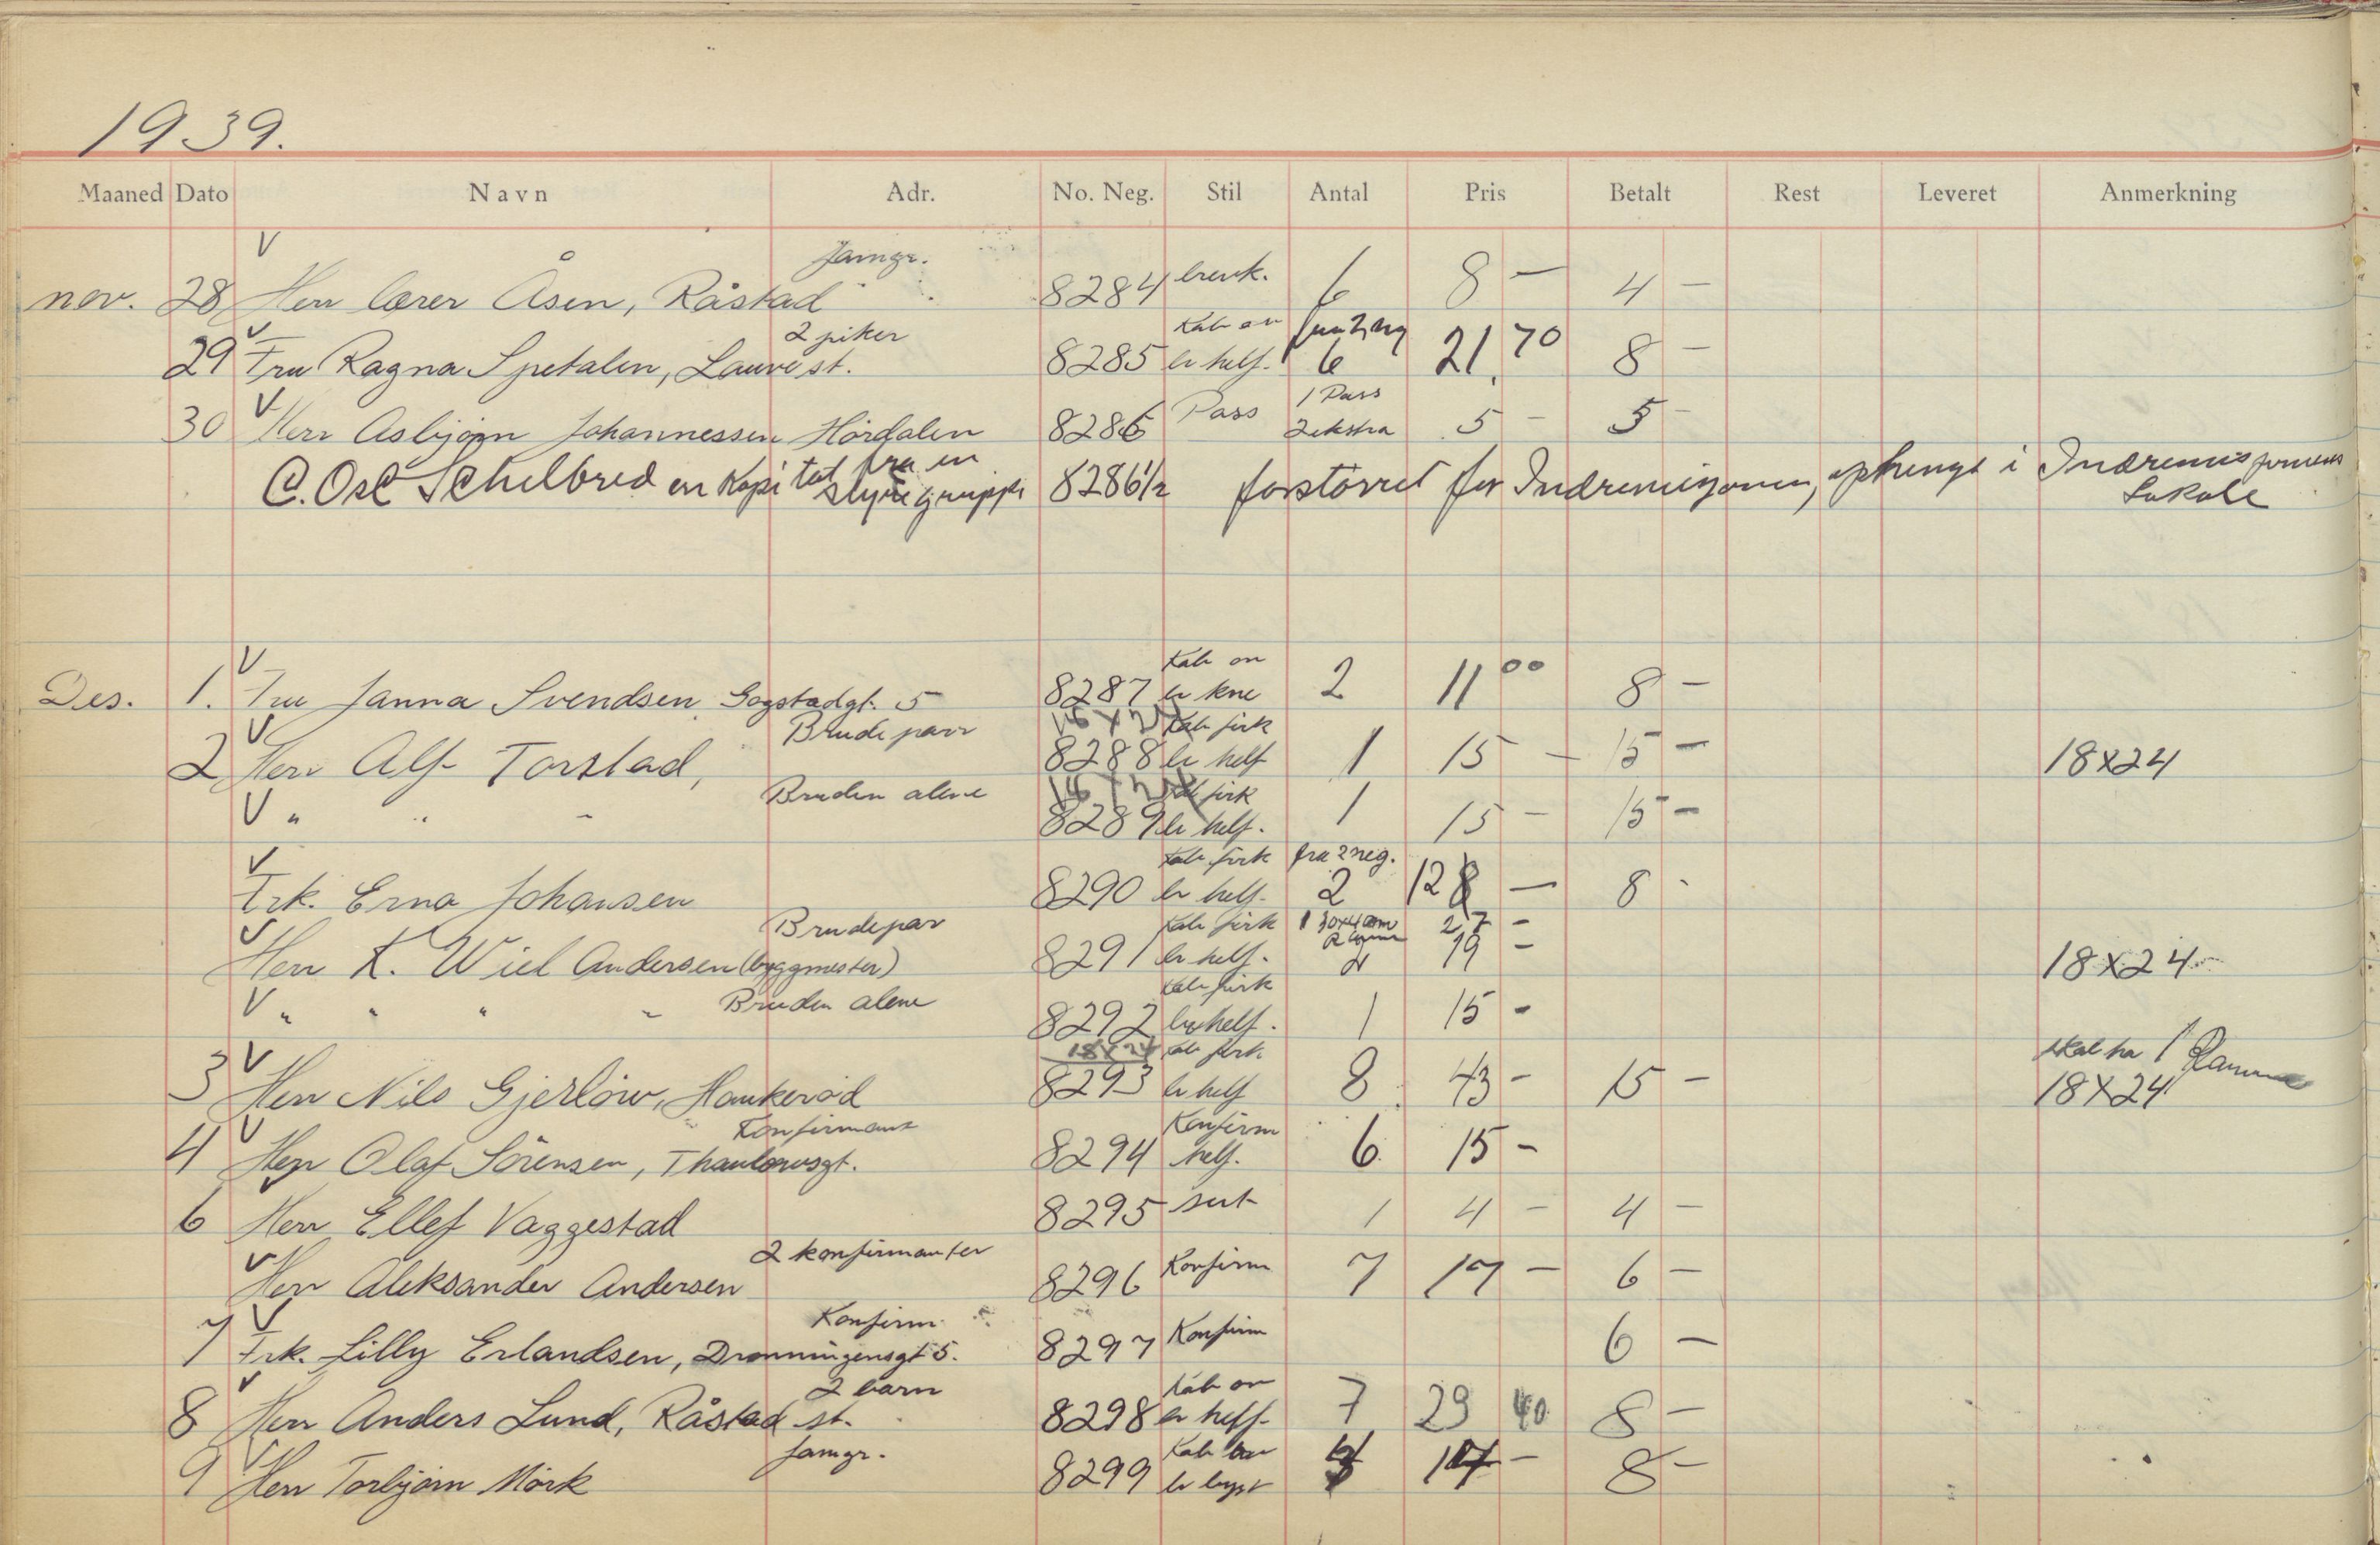 1939.
Maaned Dato Navn Adr. No. Neg. Stil Antal Pris Betalt Rest Leveret Anmerkning
V famgr.
nov. 28 Herr lærer Åsen, Råstad 8284 brevk. 6 8 — 4 —
V 2 piker Kab on fra 2 neg
29 Fru Ragna Spetalen, Lauve st. 8285 br helf. 6 21,70 8 —
V 1 Pass
30 Herr Asbjörn Johannessen Hördalen 8286 Pass 2 ekstra 5 - 5 -
C. Osc Schelbred en Kopi tat fra en 8286 1/2 forstörret for Indremisjonen, ophengt i Indremisjonens
styregruppe Lokale
V Kab on
Des. 1. Fru Janna Svendsen Gogstadgt. 5 8287 br kne 2 11 00 8 —
V Brudepar Kab firk
2 Herr Alf Torstad, 8288 br helf 1 15 — 15 — 18x24
Bruden alene firk
V " " " 8289 br helf. 1 15 — 15 —
V Kab firk fra 2 neg.
Frk. Erna Johansen 8290 br helf. 2 12 — 8 -
V Brudepar Kab firk 1 30x40 cm 27 -
Herr K. Wiel Andersen (byggmester) 8291 br helf. 19 - 18x24
Kab firk
V " " " " Bruden alene 8292 br helf. 1 15 -
V 18x24 Kab firk. skal ha 1 Ramme
3 Herr Nils Gjerlöw, Haukeröd 8293 br helf 8 43 - 15 - 18x24
V Konfirmant Konfirm
4 Herr Olaf Sörensen, Thaulowsgt. 8294 helf. 6 15 -
6 Herr Ellef Vaggestad 8295 sert 1 4 — 4 —
V 2 konfirmanter
Herr Aleksander Andersen 8296 Konfirm 7 17 — 6 —
V Konfirm.
7 Frk. Lilly Erlandsen, Dronningensgt 5. 8297 Konfirm 6 —
V 2 barn Kab on
8 Herr Anders Lund, Råstad st. 8298 br helf. 7 29 40 8 —
V famgr. Kab
9 Herr Torbjörn Mörk 8299 br 8 —